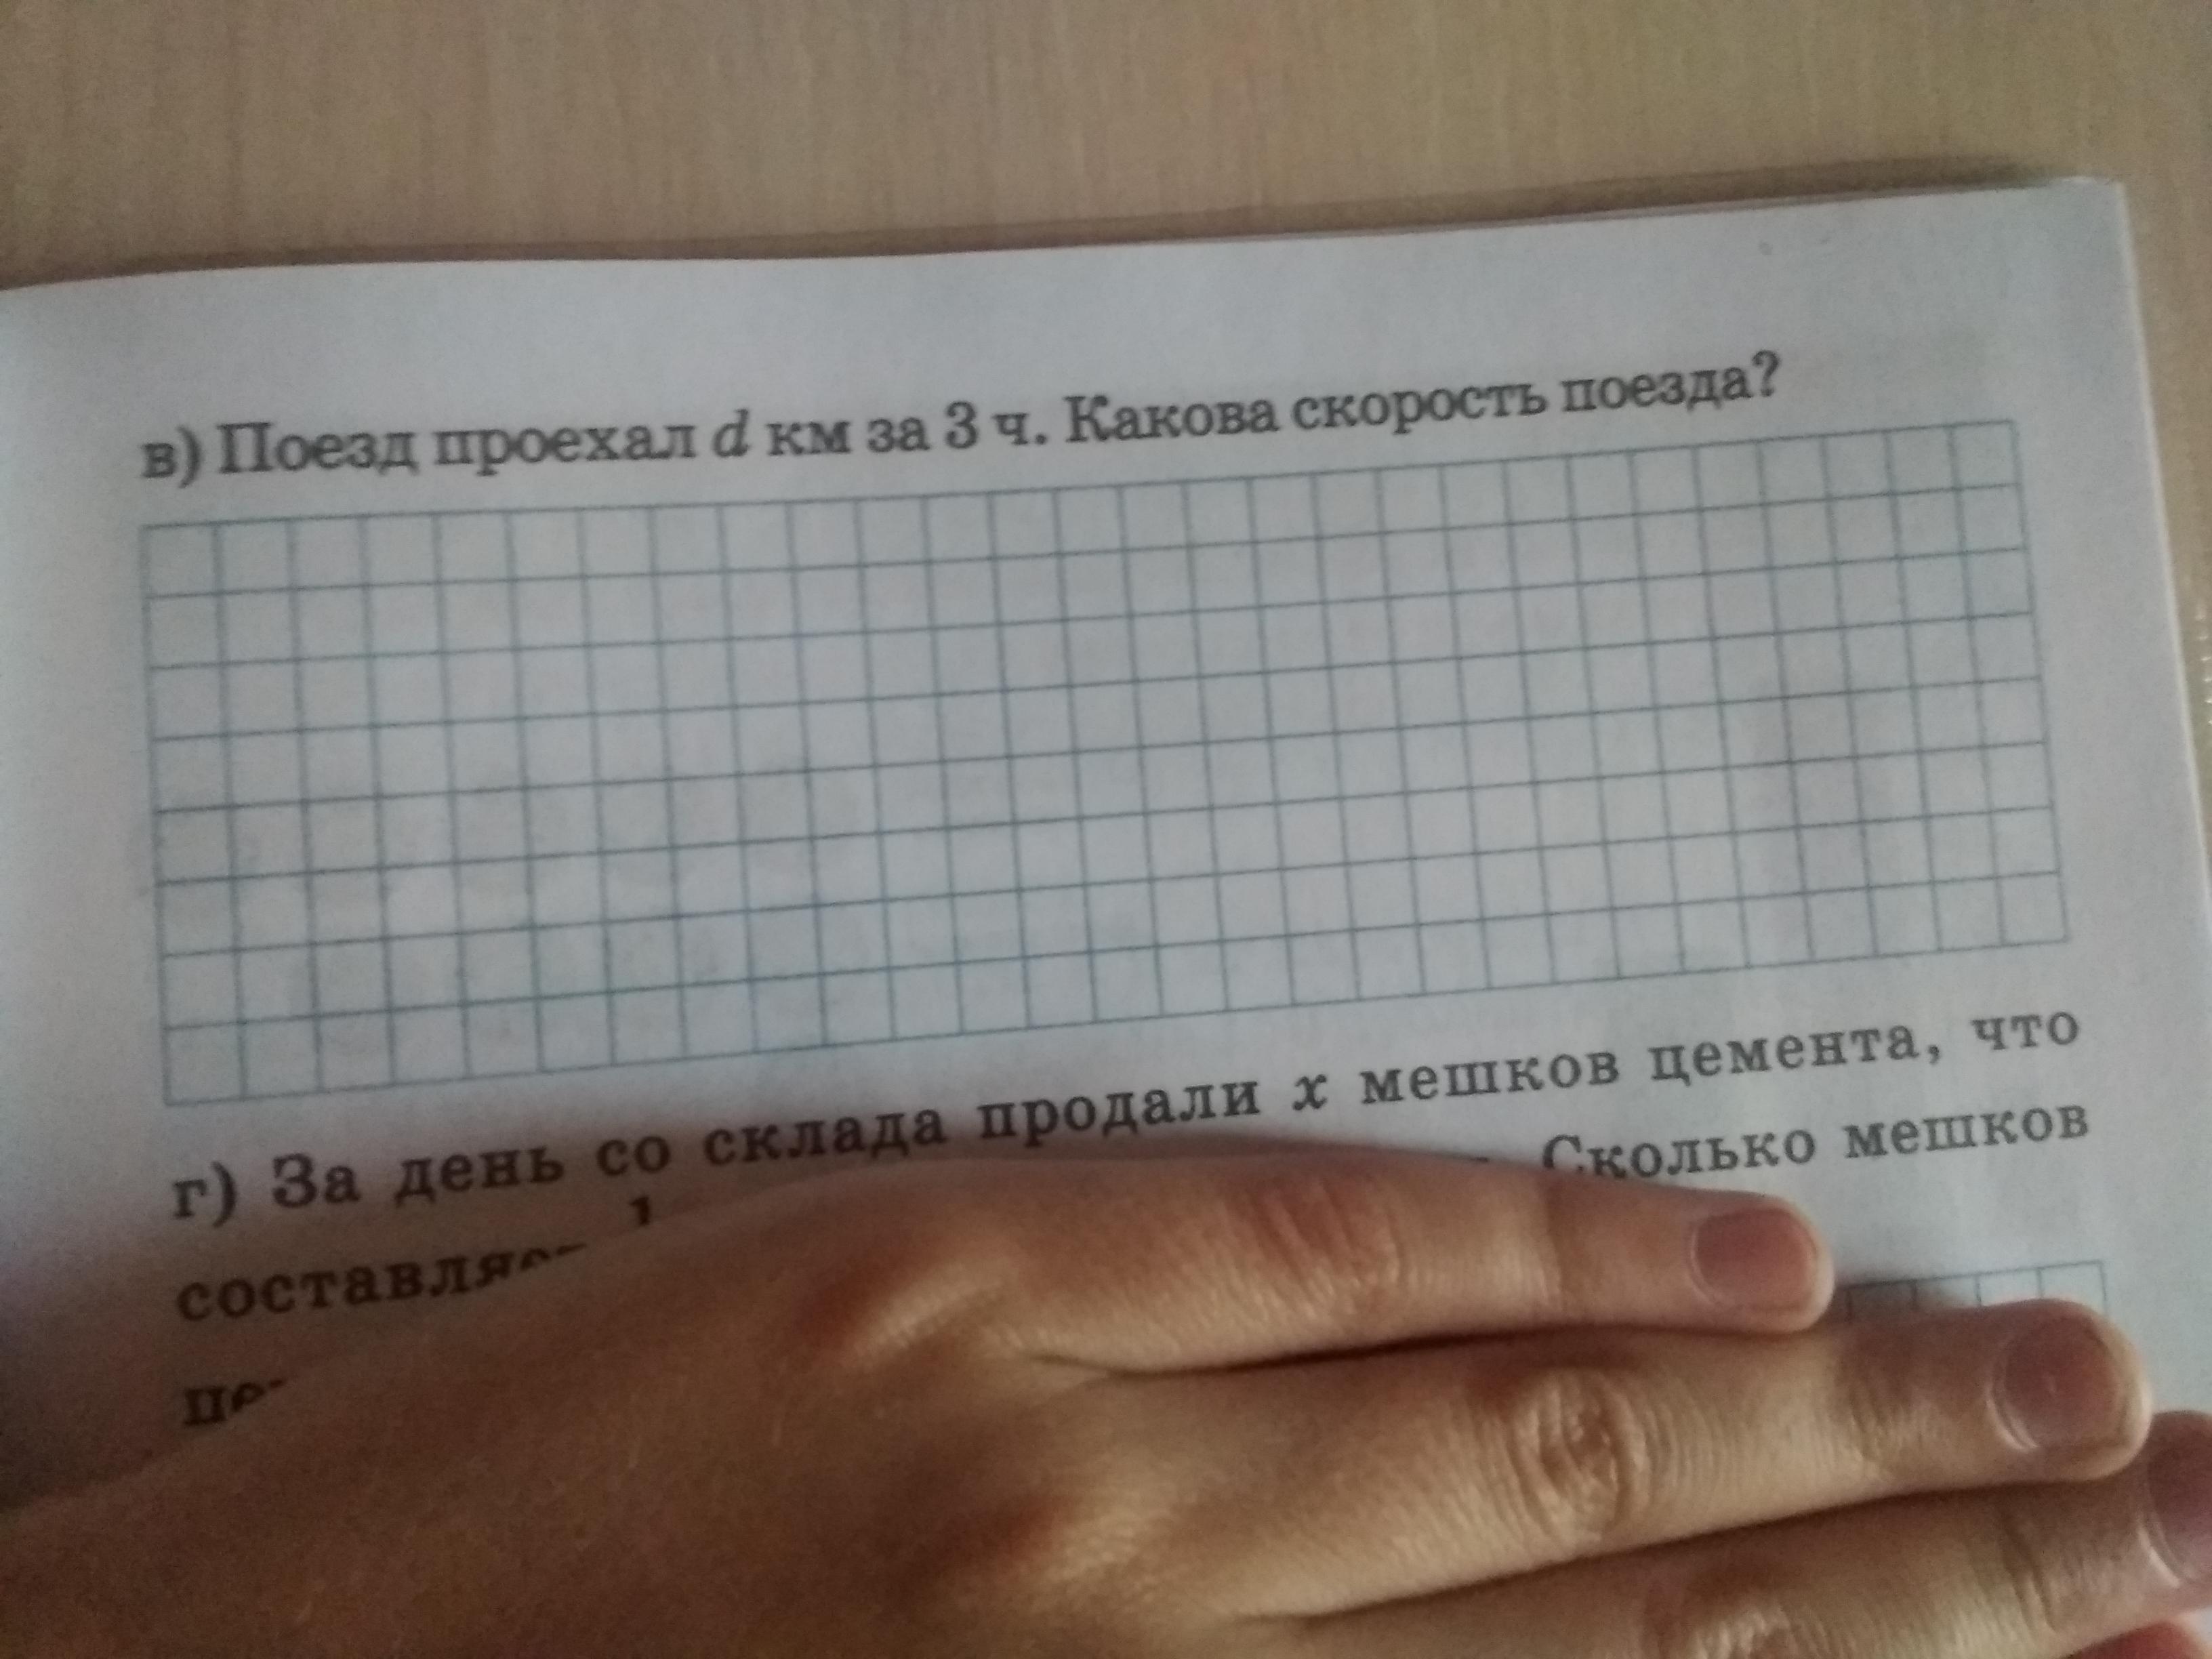 в) Поезд проехал d км за 3 ч. Какова скорость поезда?
г) За день со склада продали x мешков цемента, что
1 Сколько мешков